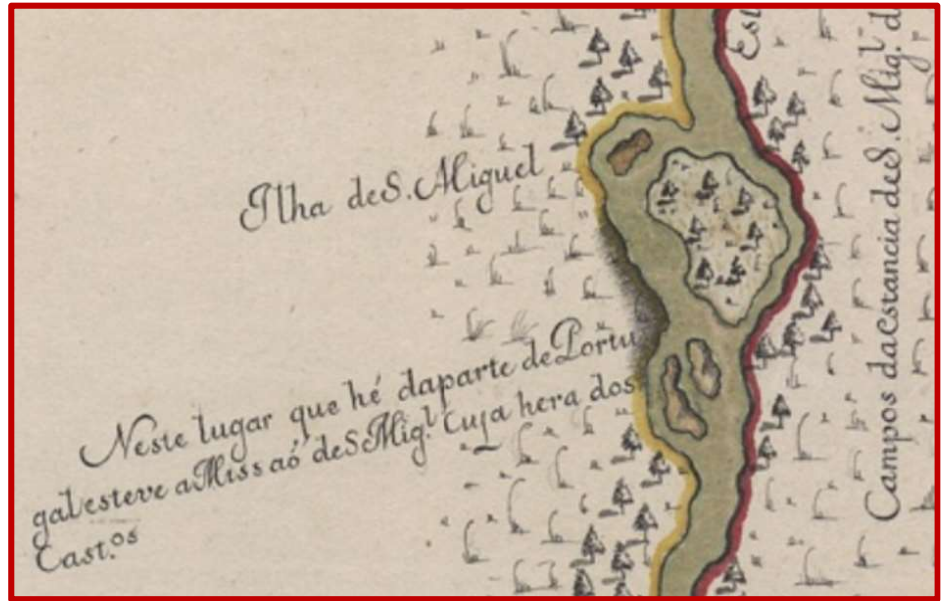 Ilha de S. Miguel
Neste lugar que hé daparte de Portu
gal esteve a Missaó de S Mig.l Cuja hera dos
Cast.os
Est
Campos da Estancia de S. Mig.l d